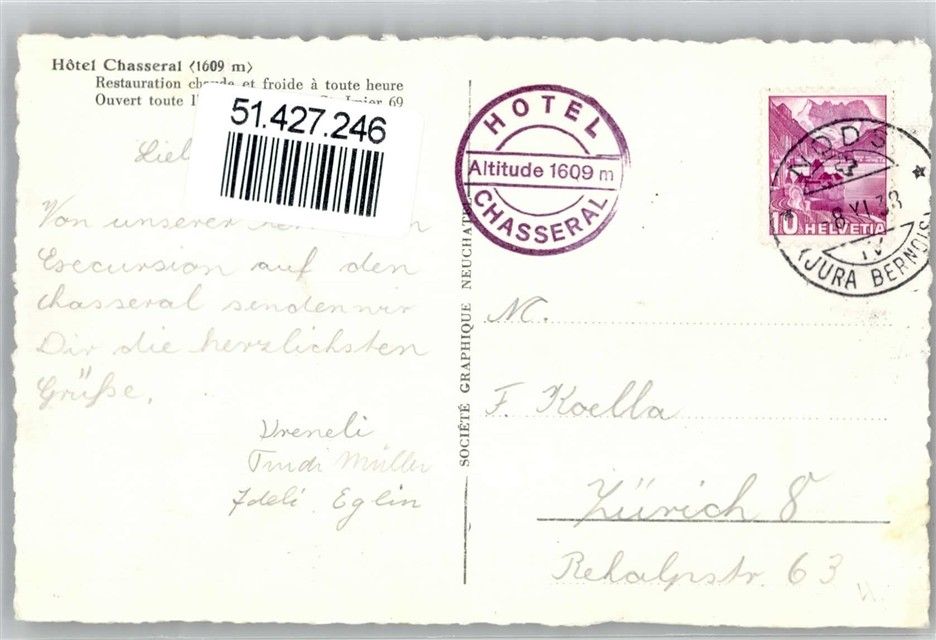 Hôtel Chasseral (1609 m)
Restauration chaude et froide à toute heure
Ouvert toute St-Imier 69
51.427.246
Von unserer
Excursion auf den
Chasseral senden wir
Dir die herzlichsten
Grüße.
Vreneli
Trudi Müller
Ideli Eglin
SOCIÉTÉ GRAPHIQUE NEUCHATEL
HOTEL
Altitude 1609 m
CHASSERAL
10 HELVETIA
NODS
8.VI.38
IV
(JURA BERNOIS)
F. Koella
Zürich 8
Rehalpstr. 63